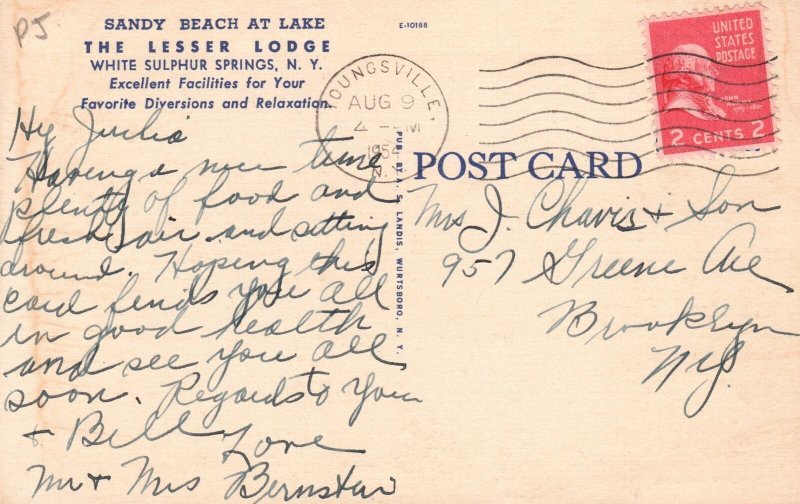 PJ
SANDY BEACH AT LAKE
THE LESSER LODGE
WHITE SULPHUR SPRINGS, N. Y.
Excellent Facilities for Your
Favorite Diversions and Relaxation.
E-10188
YOUNGSVILLE,
AUG 9
4 - M
1954
N.Y.
UNITED
STATES
POSTAGE
JOHN
2 CENTS 2
Hy Julia
Having a nice time
plenty of food and
fresh air and sitting
around. Hoping this
card finds you all
in good health
and see you all
soon. Regards to you
+ Bill Love
Mr + Mrs Bernstein
PUB. BY A. S. LANDIS, WURTSBORO, N. Y.
POST CARD
Mrs J. Chavis + Son
957 Greene Ave
Brooklyn
NY.